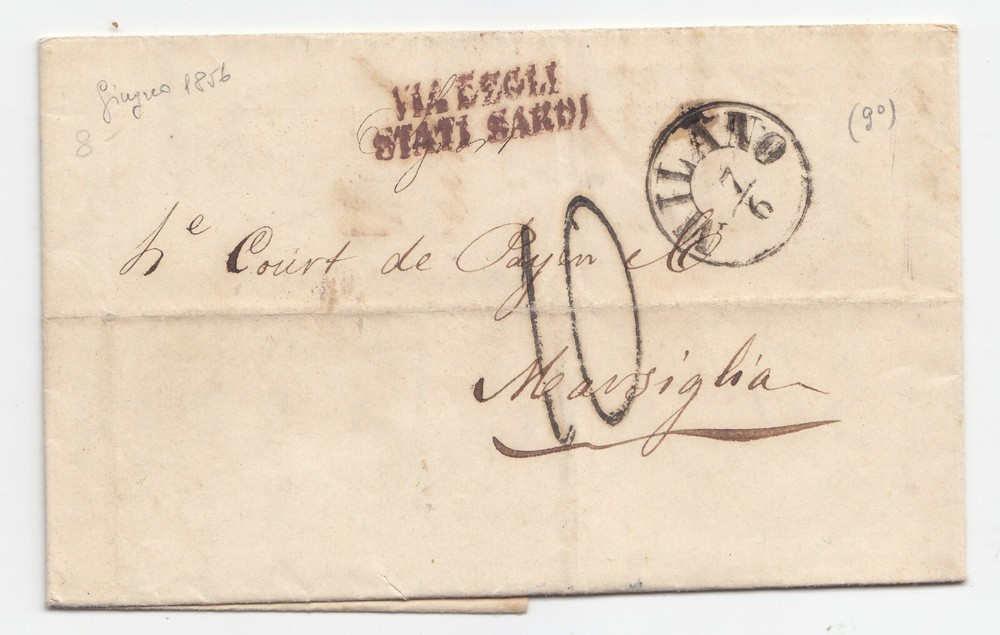 Giugno 1856
8
VIA DEGLI
STATI SARDI
MILANO
7/6
(9°)
Court de Payen
10
Marsiglia